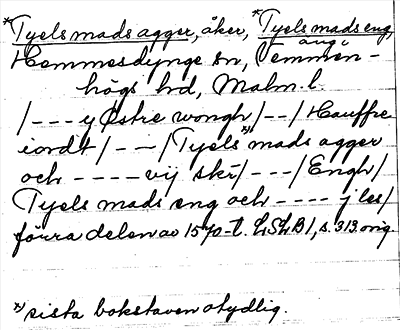 *Tyels mads agger, åker, *Tyels mads eng,
äng i
Hemmesdynge sn, Vemmen-
högs hd, Malm. l.
/---y Østre wongh/--/Hauffre
iordt/---/Tyels mads x) agger
och ---- vij skr/---/Engh/
Tyels mads eng och ---- j les/
förra delen av 1570-t. LSLB1, s. 313 orig.
x) sista bokstaven otydlig.